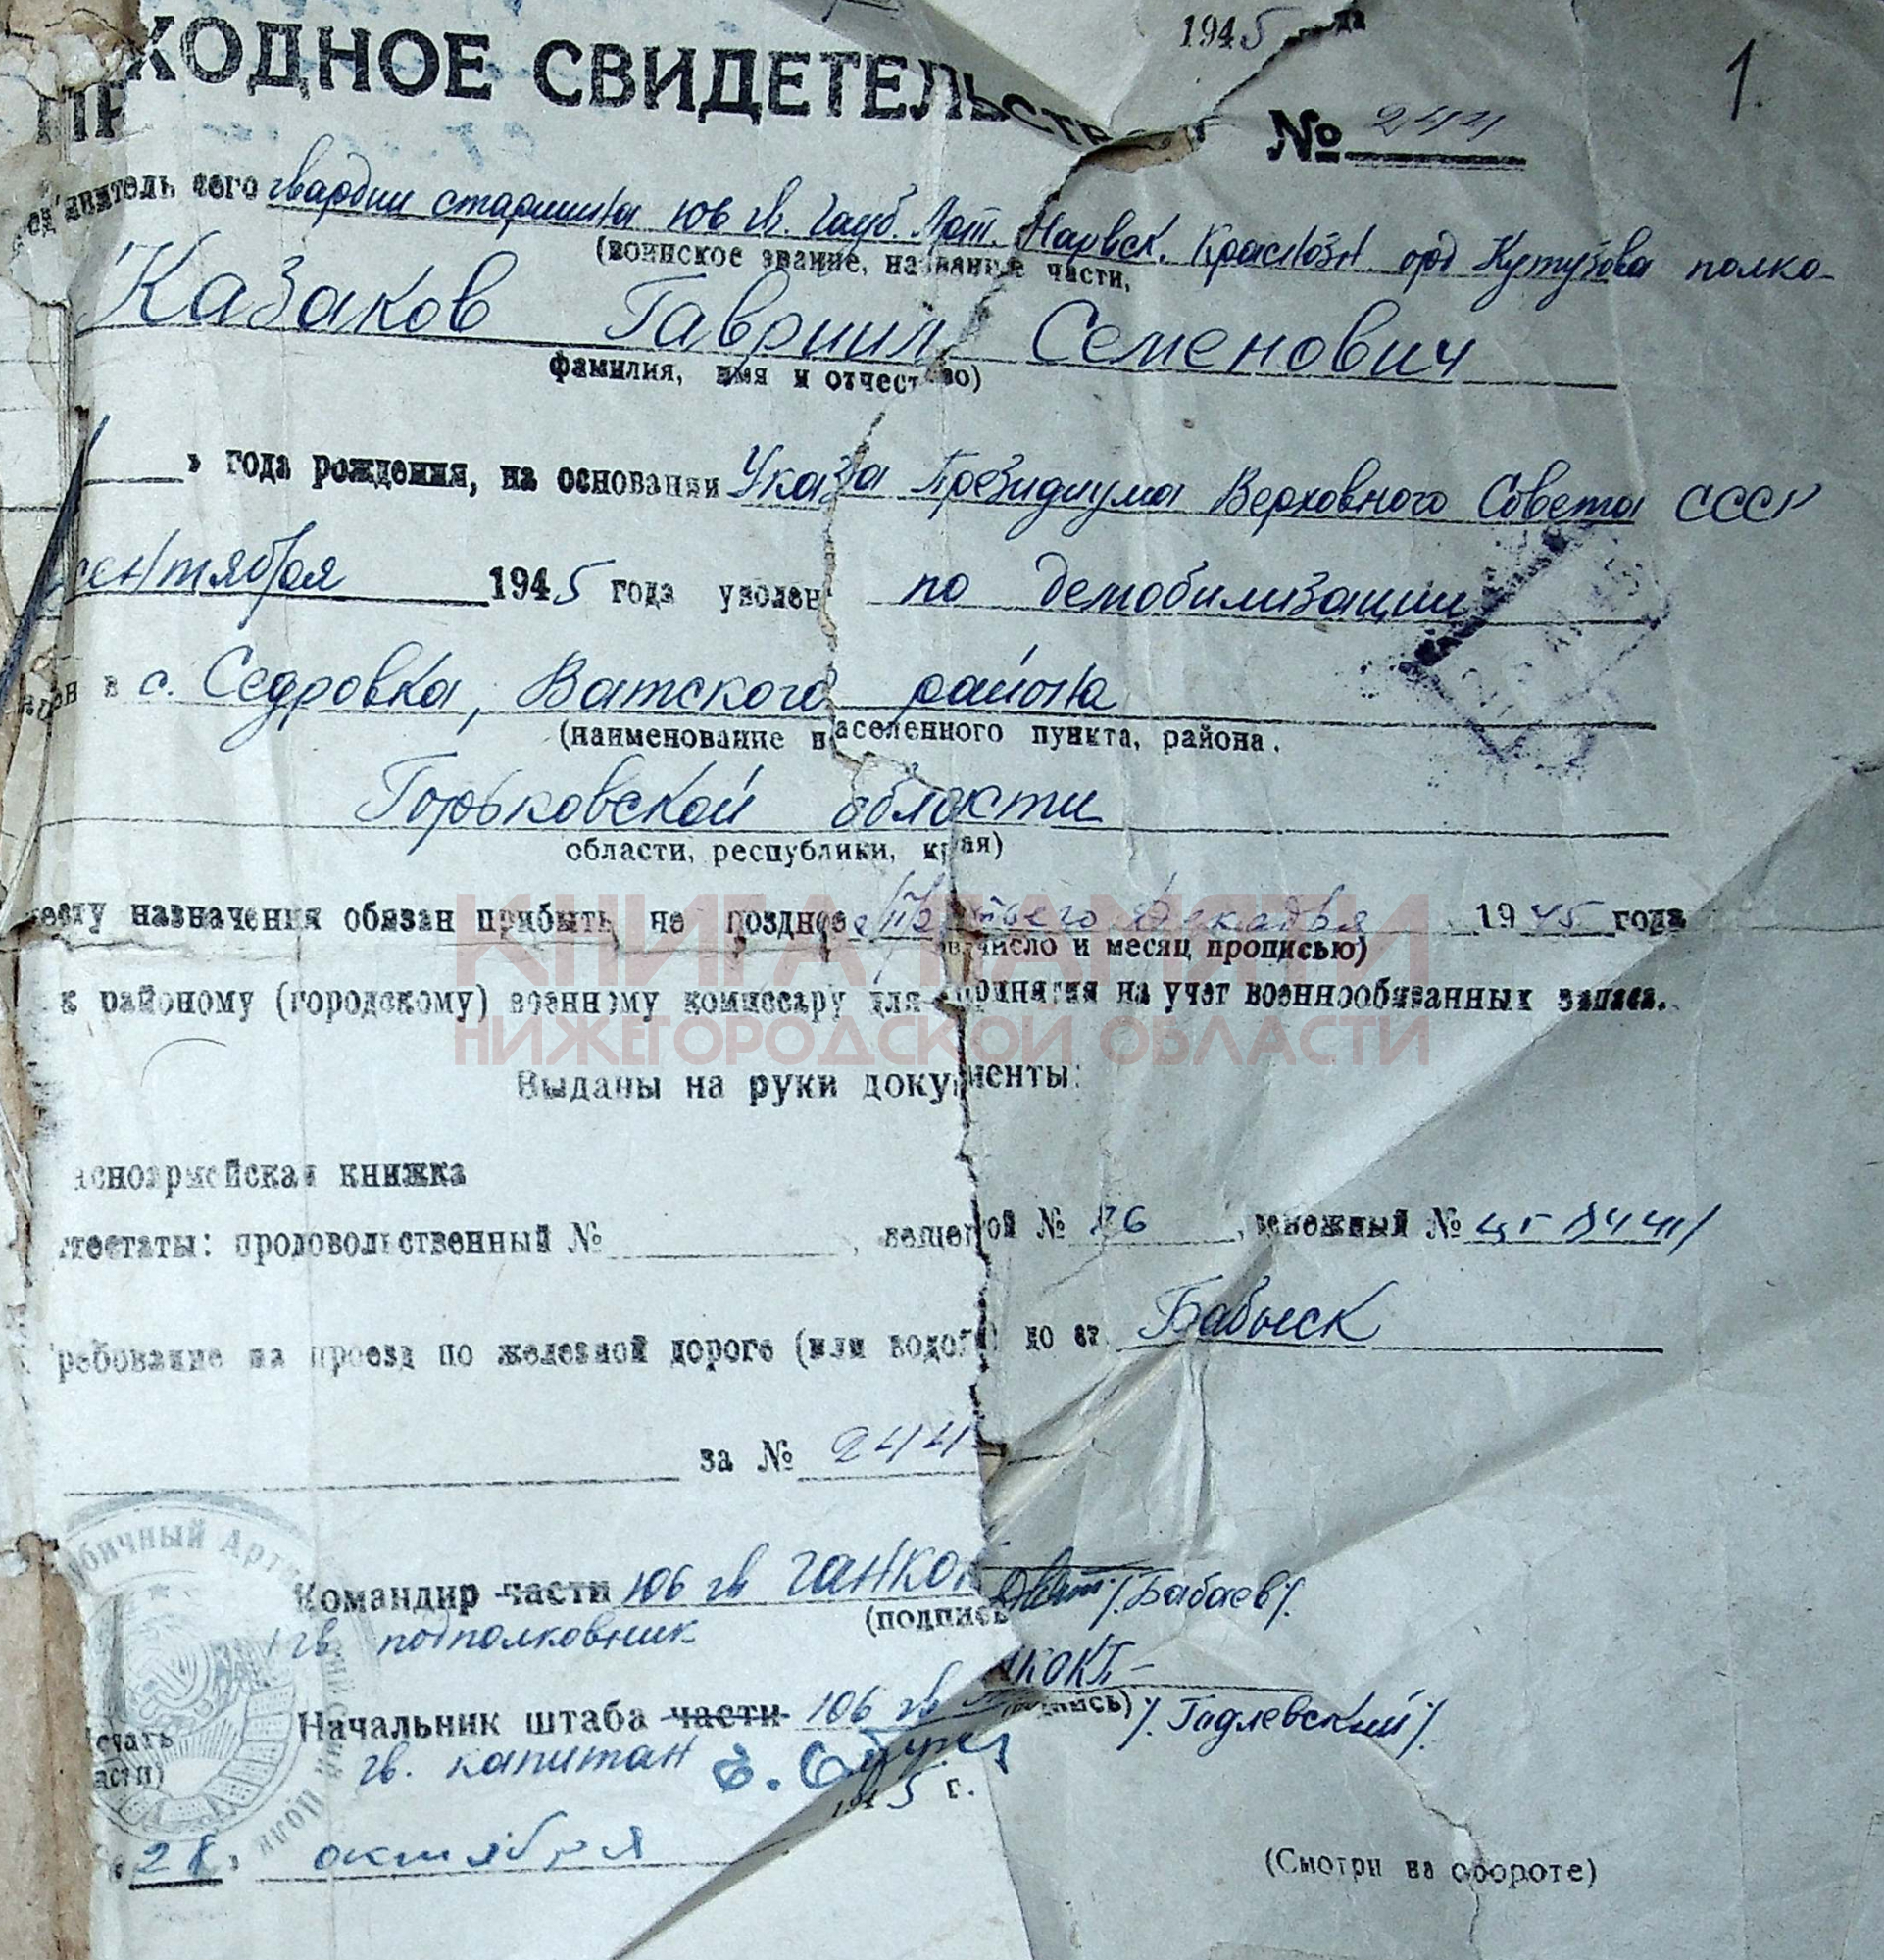 1945 года
1.
ПРОХОДНОЕ СВИДЕТЕЛЬСТВО № 244
ед'явитель сего гвардии старшина 106 гв. гауб. Арт. Нарвск. Краснозн. орд Кутузова полка
(воинское звание, название части,
Казаков Гавриил Семенович
фамилия, имя и отчество)
" года рождения, на основании Указа Президиума Верховного Совета СССР
сентября 1945 года уволен по демобилизации
в с. Седровка, Ватского района
(наименование населенного пункта, района.
Горьковской области
области, республики, края)
месту назначения обязан прибыть не позднее декадья 1945 года
число и месяц прописью)
к районому (городскому) военному комиссару для принятия на учет военнообязанных запаса.
КНИГА ПАМЯТИ
НИЖЕГОРОДСКОЙ ОБЛАСТИ
Выданы на руки документы:
асноармейская книжка
ттестаты: продовольственный № , вещевой № 26 , денежный №
ребование на проезд по железной дороге (или водой) до ст.
за № 244
Командир части 106 гв /.Бабаев/.
гв подполковник (подпись
Начальник штаба части 106 гв
(подпись) /.Гадлевский/.
ечать
асти)
гв. капитан
1945 г.
28, октября
(Смотри на обороте)